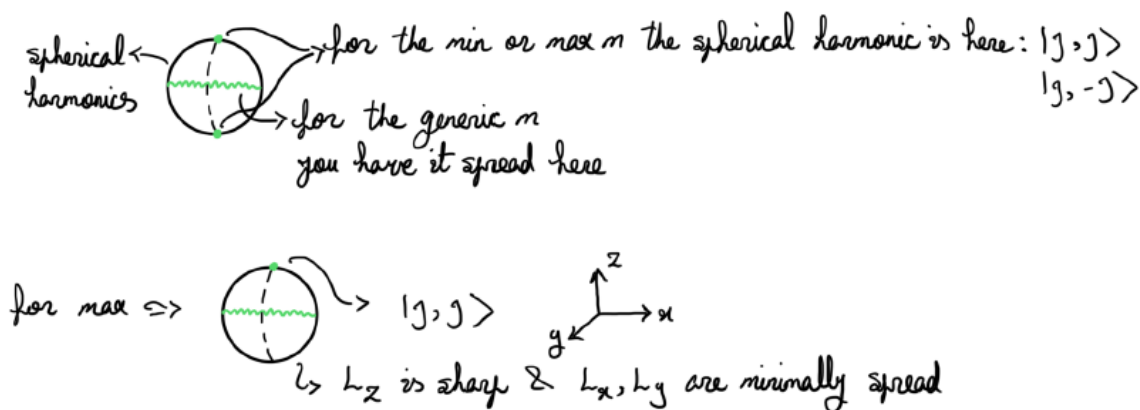 spherical harmonics
for the min or max m the spherical harmonic is here: |j, j⟩
|j, -j⟩
for the generic m
you have it spread here
for max => |j, j⟩
z
x
y
↳ Lz is sharp & Lx, Ly are minimally spread